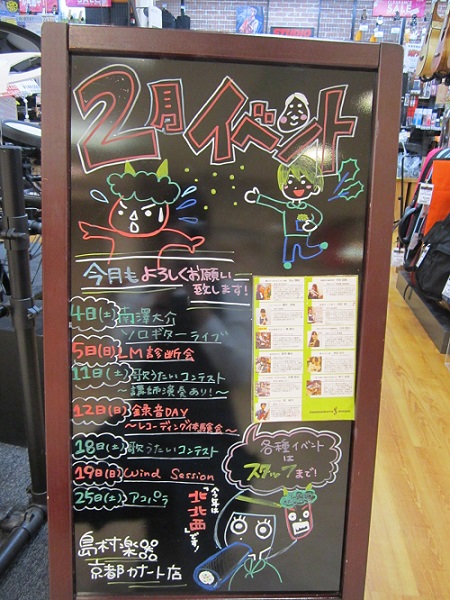 2月イベント
今月もよろしくお願い
致します!
4日(土)南澤大介
ソロギターライブ
5日(日)LM診断会
11日(土)歌うたいコンテスト
講師演奏あり!~
12日(日)録音DAY
~レコーディング体験会~
18日(土)歌うたいコンテスト
19日(日)Wind Session
25日(土)アコパラ
各種イベント
は
スタッフまで!
今年は
"北北西"
です!
島村楽器
京都カナート店